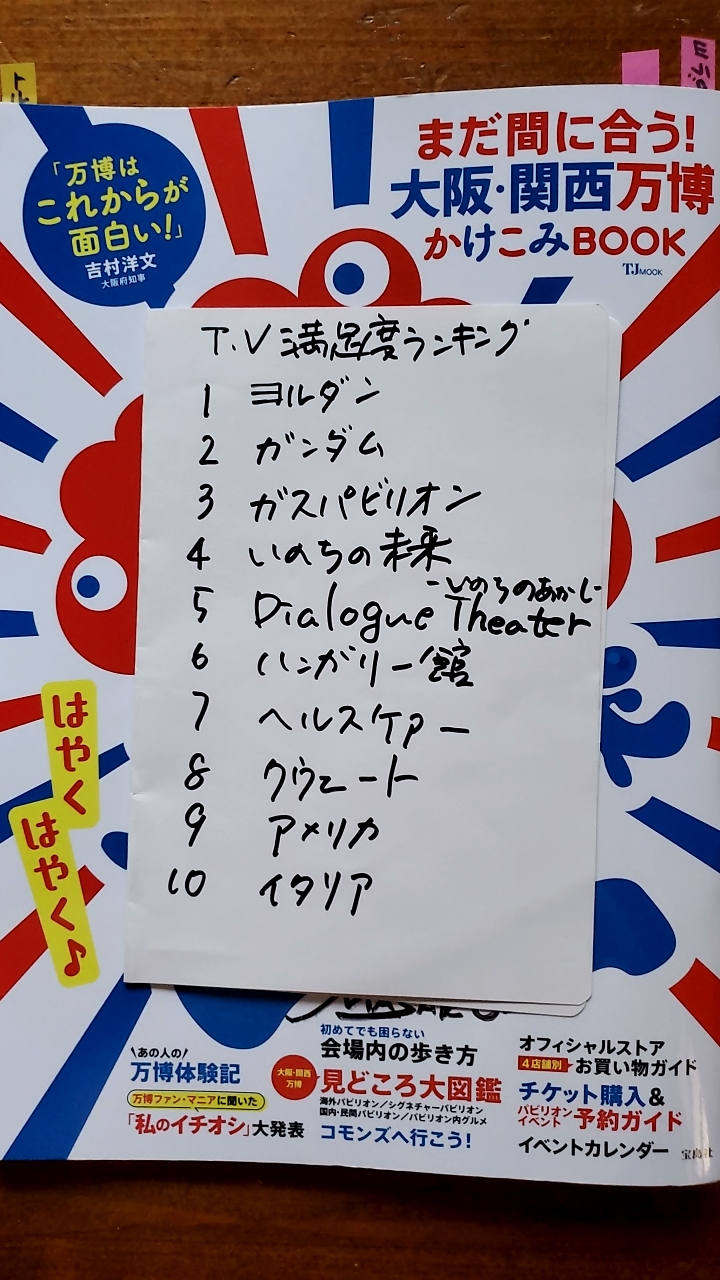 まだ間に合う!
大阪・関西万博
かけこみBOOK
TJ MOOK
「万博は
これからが
面白い!」
吉村洋文
大阪府知事
T.V 満足度ランキング
1 ヨルダン
2 ガンダム
3 ガスパビリオン
4 いのちの未来
5 Dialogue Theater -いのちのあかし-
6 ハンガリー館
7 ヘルスケアー
8 クウェート
9 アメリカ
10 イタリア
はやく
はやく♪
あの人の
万博体験記
万博ファン・マニアに聞いた
「私のイチオシ」大発表
初めてでも困らない
会場内の歩き方
大阪・関西
万博
見どころ大図鑑
海外パビリオン/シグネチャーパビリオン
国内・民間パビリオン/パビリオン内グルメ
コモンズへ行こう!
オフィシャルストア
4店舗別 お買い物ガイド
チケット購入&
パビリオン
イベント 予約ガイド
イベントカレンダー
宝島社